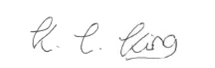 K. C. King